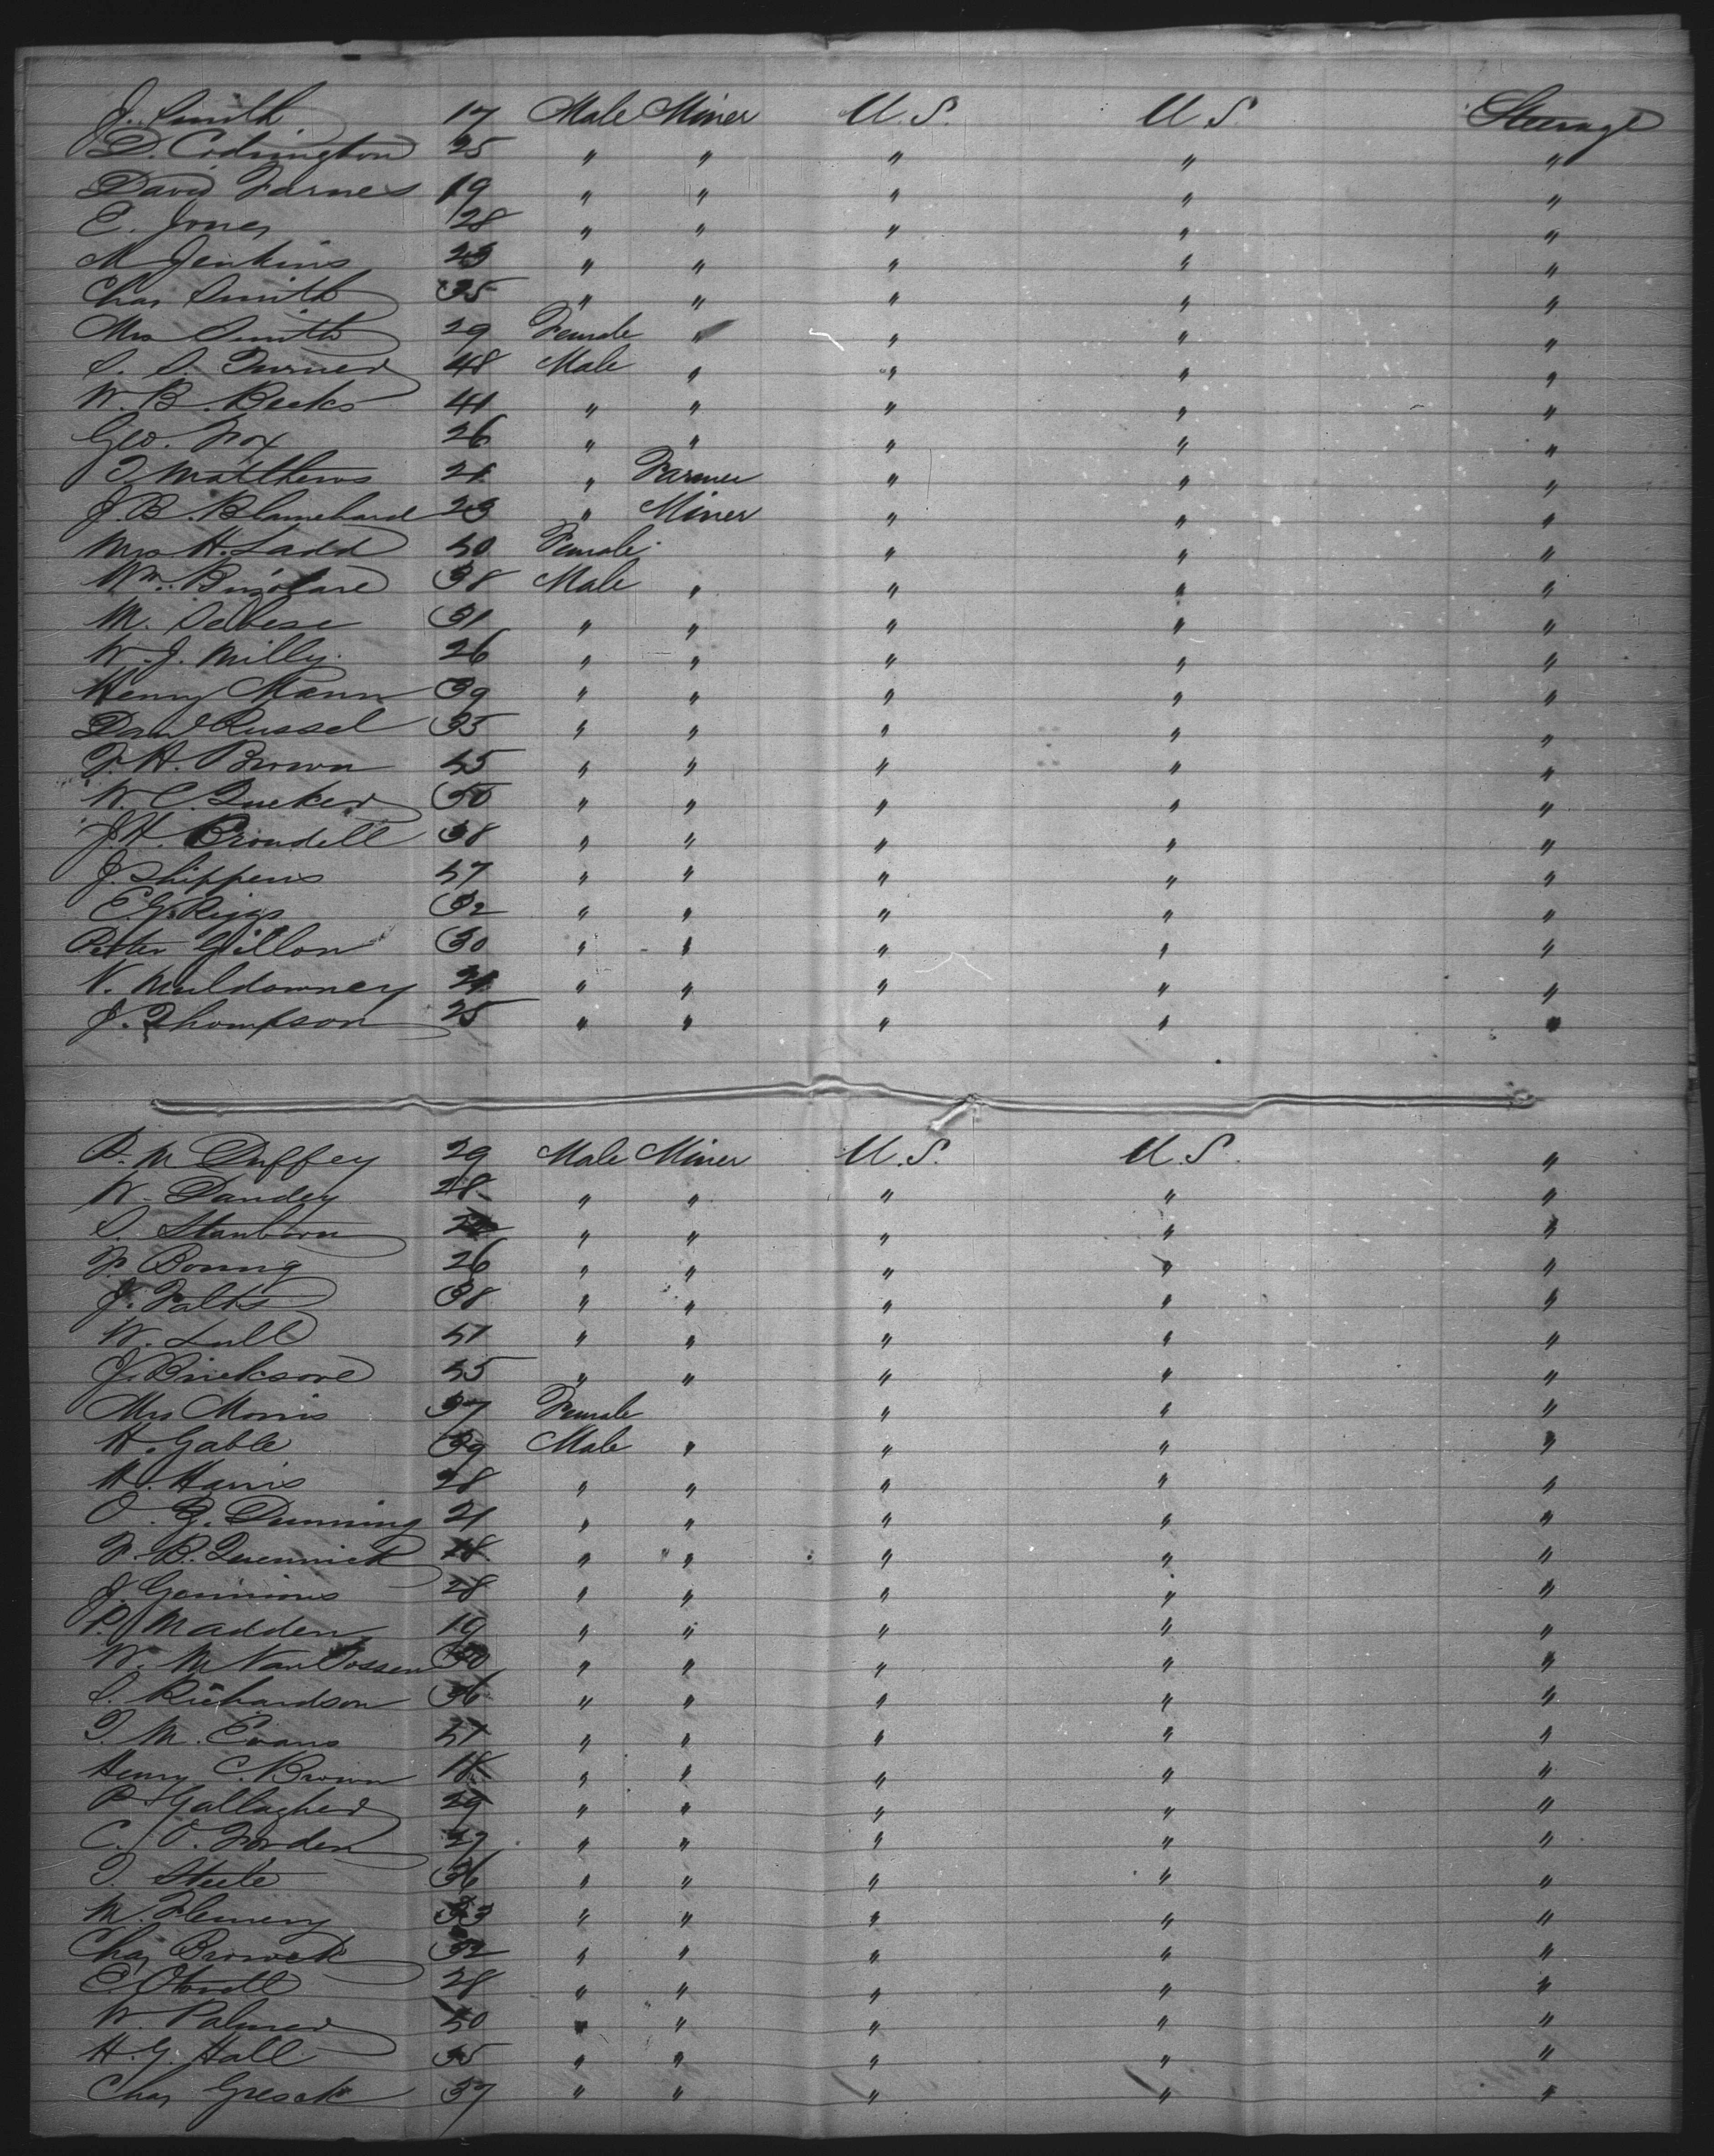 J. Smith 17 Male Miner U.S. U.S. Steerage
D. Codrington 25 " " " " "
David Farnes 19 " " " " "
E. Jones 28 " " " " "
M Jenkins 23 " " " " "
Chas Smith 35 " " " " "
Mrs Smith 29 Female " " " "
S. S. Turner 48 Male " " " "
W. B. Beeks 41 " " " " "
Geo. Fox 26 " " " " "
T. Matthews 21 " Farmer " " "
J. B. Blanchard 23 " Miner " " "
Mrs H. Ladd 40 Female " " "
Wm. 38 Male " " " "
M. 31 " " " " "
W. J. Milly 26 " " " " "
Henry Mann 39 " " " " "
Danl Russel 35 " " " " "
F. H. Brown 45 " " " " "
W. C. Tucker " " " " "
J. H. Brondell 38 " " " " "
J. Shippens 47 " " " " "
E. G. Riggs 32 " " " " "
Peter Gillon 30 " " " " "
N. Muldowney 21 " " " " "
J. Thompson 25 " " " " "
P. M Duffey 29 Male Miner U.S. U.S. "
W. Dandey 28 " " " " "
S. Stanborn " " " " "
F. Boung 26 " " " " "
J. Falts 38 " " " " "
W. Lull 41 " " " " "
J. 45 " " " " "
Mrs Morris 37 Female " " "
H. Gable 39 Male " " " "
H. Harris 28 " " " " "
O. G. Dunning 21 " " " " "
F. B. " " " " "
J. Gemmins 28 " " " " "
P. Madden 19 " " " " "
W. M Van Tossen " " " " "
S. Richardson 36 " " " " "
T. M. Evans 41 " " " " "
Henry C. Brown 18 " " " " "
P. Gallagher 29 " " " " "
C. O. Forden 27 " " " " "
T. Steele 36 " " " " "
M. Flemery 33 " " " " "
Chas 32 " " " " "
E. 28 " " " " "
W. Palmer 40 " " " " "
H. G. Hall 35 " " " " "
Chas Gresck 37 " " " " "